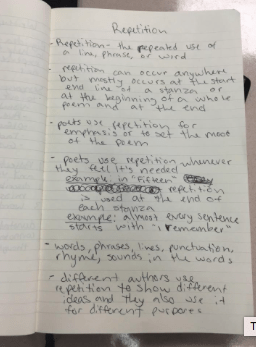 Repetition
- Repetition - the repeated use of
a line, phrase, or word
- repetition can occur anywhere
but mostly occurs at the start
end line of a stanza or
at the beginning of a whole
poem and at the end
- poets use repetition for
emphasis or to set the mood
of the poem
- poets use repetition whenever
they feel it's needed
example in "Fifteen"
repetition
is used at the end of
each stanza
example: almost every sentence
starts with "I remember"
- words, phrases, lines, punctuation,
rhyme, sounds in the words
- different authors use
repetition to show different
ideas and they also use it
for different purposes
T